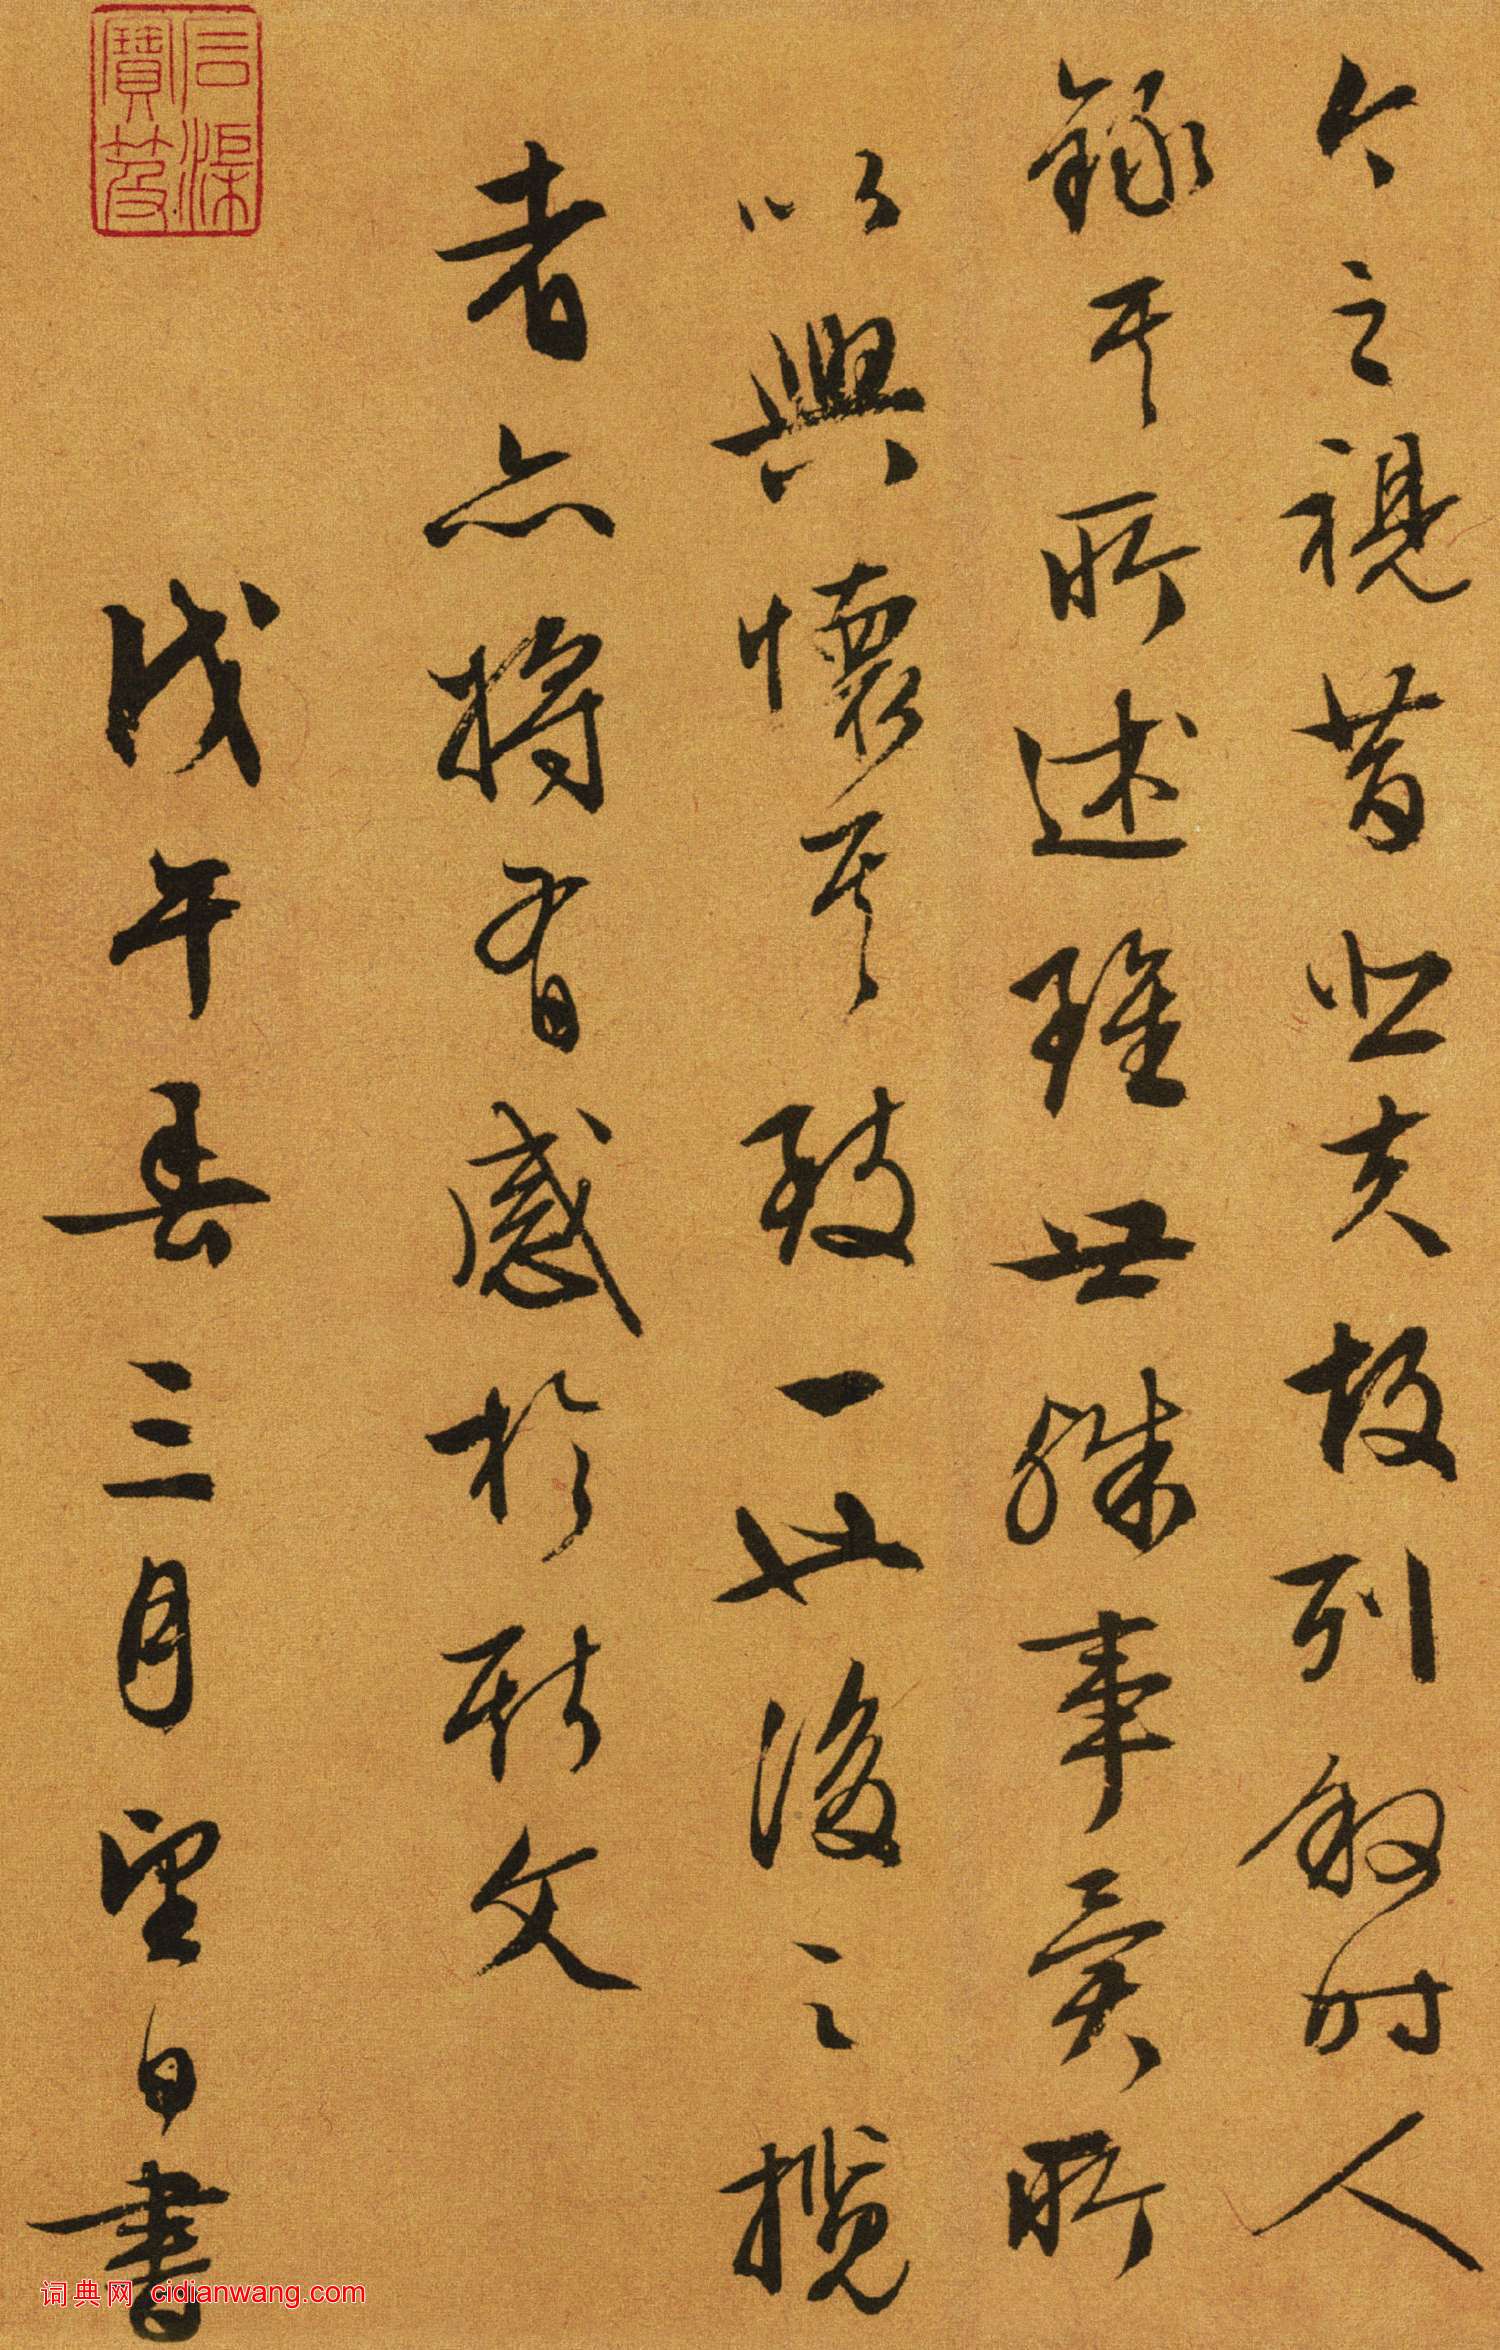 今之視昔悲夫故列叙時人
錄其所述雖世殊事異所
以興懷其致一也後之攬
者亦將有感於斯文
戊午春三月望日書
石渠寶笈
词典网 cidianwang.com